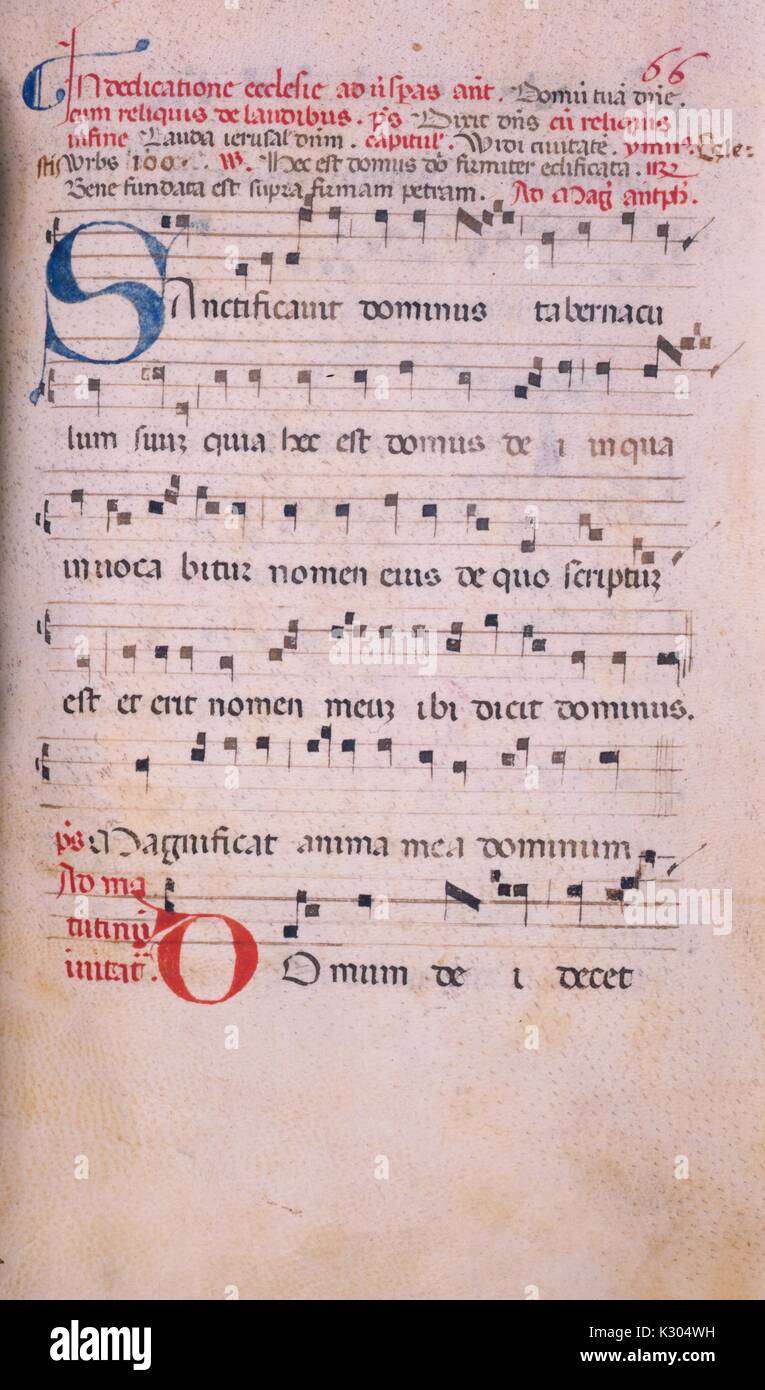 66
In dedicatione ecclesie ad ūspas añt. Domū tuā dñe.
cum reliquis de laudibus. ps Dixit dñs cū reliquis
infine Lauda ierusal dnm. capitul'. Widi ciuitate. ymnꝰ. Cele=
stis Wrbs 100. W. Hec est domus dō firmiter edificata.
Bene fundata est supra firmam petram. Ad Mag antph.
SAnctificauit dominus tabernacu
lum suuꝫ quia hec est domus de i in qua
inuoca bitur nomen eius de quo scriptuꝫ
est et erit nomen meuꝫ ibi dicit dominus.
ps Magnificat anima mea dominum
Ad ma
tutinū
inuitat.
DOmum de i decet
a
alamy
alamy stock photo
K304WH
www.alamy.com